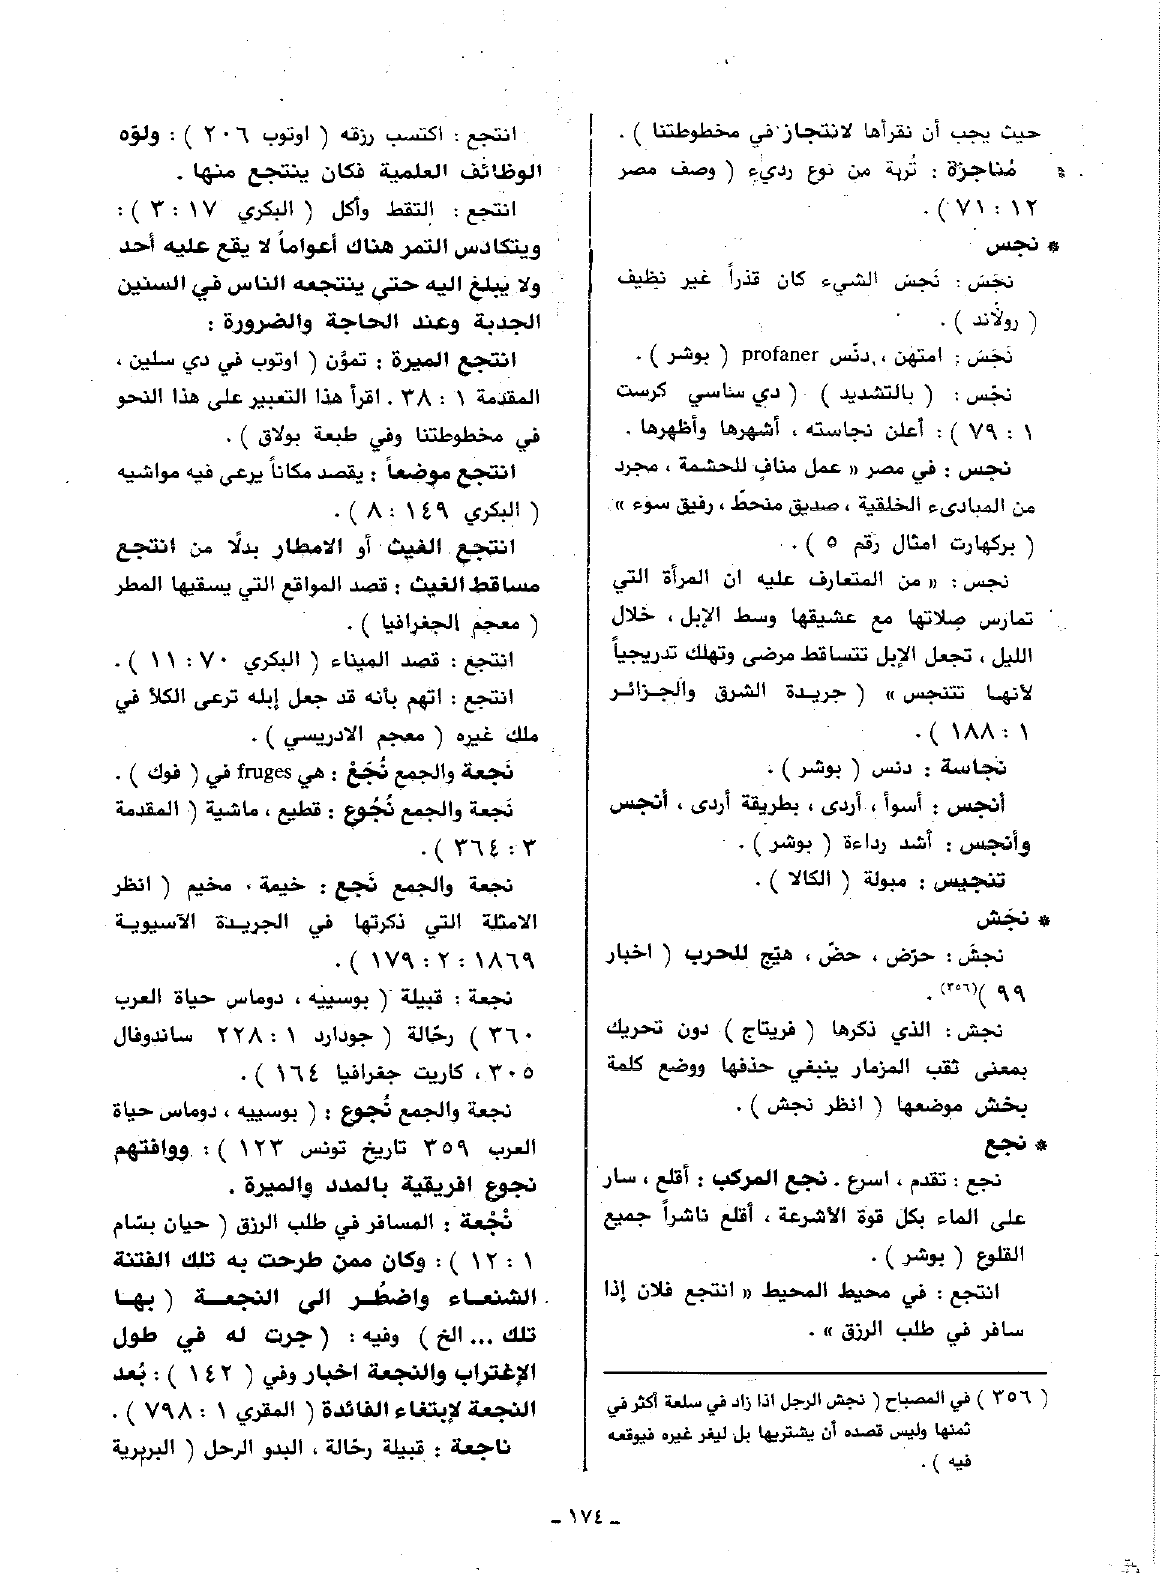 حيث يجب أن نقرأها لانتجاز في مخطوطتنا ) .
مُناجزة : تُربة من نوع رديء ( وصف مصر
١٢ : ٧١ ) .
* نجس
نَجَسَ : نَجسَ الشيء كان قذراً غير نظيف
( رولاند ) .
نَجَسَ : امتهن ، دنّس profaner ( بوشر ) .
نجّس : ( بالتشديد ) ( دي ساسي كرست
١ : ٧٩ ) : أعلن نجاسته ، أشهرها وأظهرها .
نجس : في مصر « عمل منافٍ للحشمة ، مجرد
من المبادىء الخلقية ، صديق منحطّ ، رفيق سوء »
( بركهارت امثال رقم ٥ ) .
نجس : « من المتعارف عليه ان المرأة التي
تمارس صِلاتها مع عشيقها وسط الإبل ، خلال
الليل ، تجعل الإبل تتساقط مرضى وتهلك تدريجياً
لأنهـا تتنجس » ( جريدة الشرق والجـزائـر
١ : ١٨٨ ) .
نجاسة : دنس ( بوشر ) .
أنجس : أسوأ ، أردى ، بطريقة أردى ، أنجس
وأنجس : أشد رداءة ( بوشر ) .
تنجيس : مبولة ( الكالا ) .
* نجَش
نجشَ : حرّض ، حضّ ، هيّج للحرب ( اخبار
٩٩ )(٣٥٦) .
نجش : الذي ذكرها ( فريتاج ) دون تحريك
بمعنى ثقب المزمار ينبغي حذفها ووضع كلمة
بخش موضعها ( انظر نجش ) .
* نجع
نجع : تقدم ، اسرع . نجع المركب : أقلع ، سار
على الماء بكل قوة الأشرعة ، أقلع ناشراً جميع
القلوع ( بوشر ) .
انتجع : في محيط المحيط « انتجع فلان إذا
سافر في طلب الرزق » .
( ٣٥٦ ) في المصباح ( نجش الرجل اذا زاد في سلعة أكثر في
ثمنها وليس قصده أن يشتريها بل ليغر غيره فيوقعه
فيه ) .
انتجع : اكتسب رزقه ( اوتوب ٢٠٦ ) : ولوّه
الوظائف العلمية فكان ينتجع منها .
انتجع : التقط وأكل ( البكري ١٧ : ٣ ) :
ويتكادس التمر هناك أعواماً لا يقع عليه أحد
ولا يبلغ اليه حتى ينتجعه الناس في السنين
الجدبة وعند الحاجة والضرورة :
انتجع الميرة : تموَّن ( اوتوب في دي سلين ،
المقدمة ١ : ٣٨ . اقرأ هذا التعبير على هذا النحو
في مخطوطتنا وفي طبعة بولاق ) .
انتجع موضعاً : يقصد مكاناً يرعى فيه مواشيه
( البكري ١٤٩ : ٨ ) .
انتجع الغيث أو الامطار بدلًا من انتجع
مساقط الغيث : قصد المواقع التي يسقيها المطر
( معجم الجغرافيا ) .
انتجع : قصد الميناء ( البكري ٧٠ : ١١ ) .
انتجع : اتهم بأنه قد جعل إبله ترعى الكلأ في
ملك غيره ( معجم الادريسي ) .
نَجعة والجمع نُجَعْ : هي fruges في ( فوك ) .
نَجعة والجمع نُجُوع : قطيع ، ماشية ( المقدمة
٣ : ٣٦٤ ) .
نجعة والجمع نَجع : خيمة ، مخيم ( انظر
الامثلة التي ذكرتها في الجريـدة الآسيويـة
١٨٦٩ : ٢ : ١٧٩ ) .
نجعة : قبيلة ( بوسييه ، دوماس حياة العرب
٣٦٠ ) رحّالة ( جودارد ١ : ٢٢٨ ساندوفال
٣٠٥ ، كاريت جغرافيا ١٦٤ ) .
نجعة والجمع نُجُوع : ( بوسييه ، دوماس حياة
العرب ٣٥٩ تاريخ تونس ١٢٣ ) : ووافتهم
نجوع افريقية بالمدد والميرة .
نُجْعة : المسافر في طلب الرزق ( حيان بسّام
١ : ١٢ ) : وكان ممن طرحت به تلك الفتنة
الشنعـاء واضطُـر الى النجعـة ( بهـا
تلك ... الخ ) وفيه : ( جرت له في طول
الإغتراب والنجعة اخبار وفي ( ١٤٢ ) : بُعد
النجعة لإبتغاء الفائدة ( المقري ١ : ٧٩٨ ) .
ناجعة : قبيلة رحّالة ، البدو الرحل ( البربرية
ـ ١٧٤ ـ